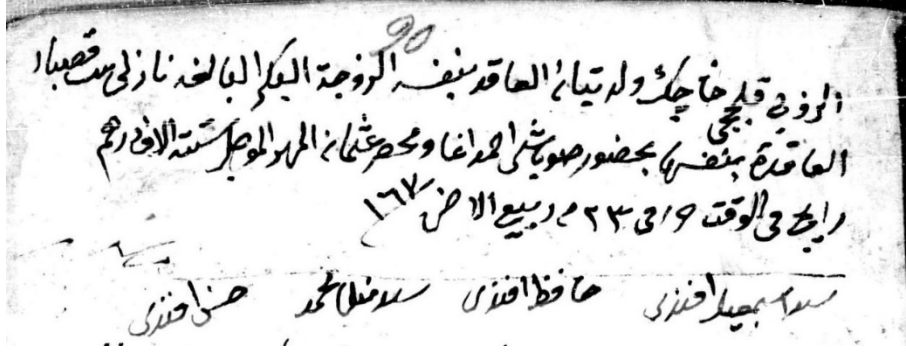 90
الزوج قليچجى خاچك ولد تيان العاقد بنفسه الزوجة البكر البالغه نازلى بنت قصبار
العاقدة بنفسها بحضور صوباشى احمد اغا ومحضر عثمان المهر المؤجل ستة الاف درهم
رايج فى الوقت فى ٢٣ م ربيع الاخر ١١٦٧
سيد اسمعيل افندى حافظ افندى منلا محمد حسن افندى